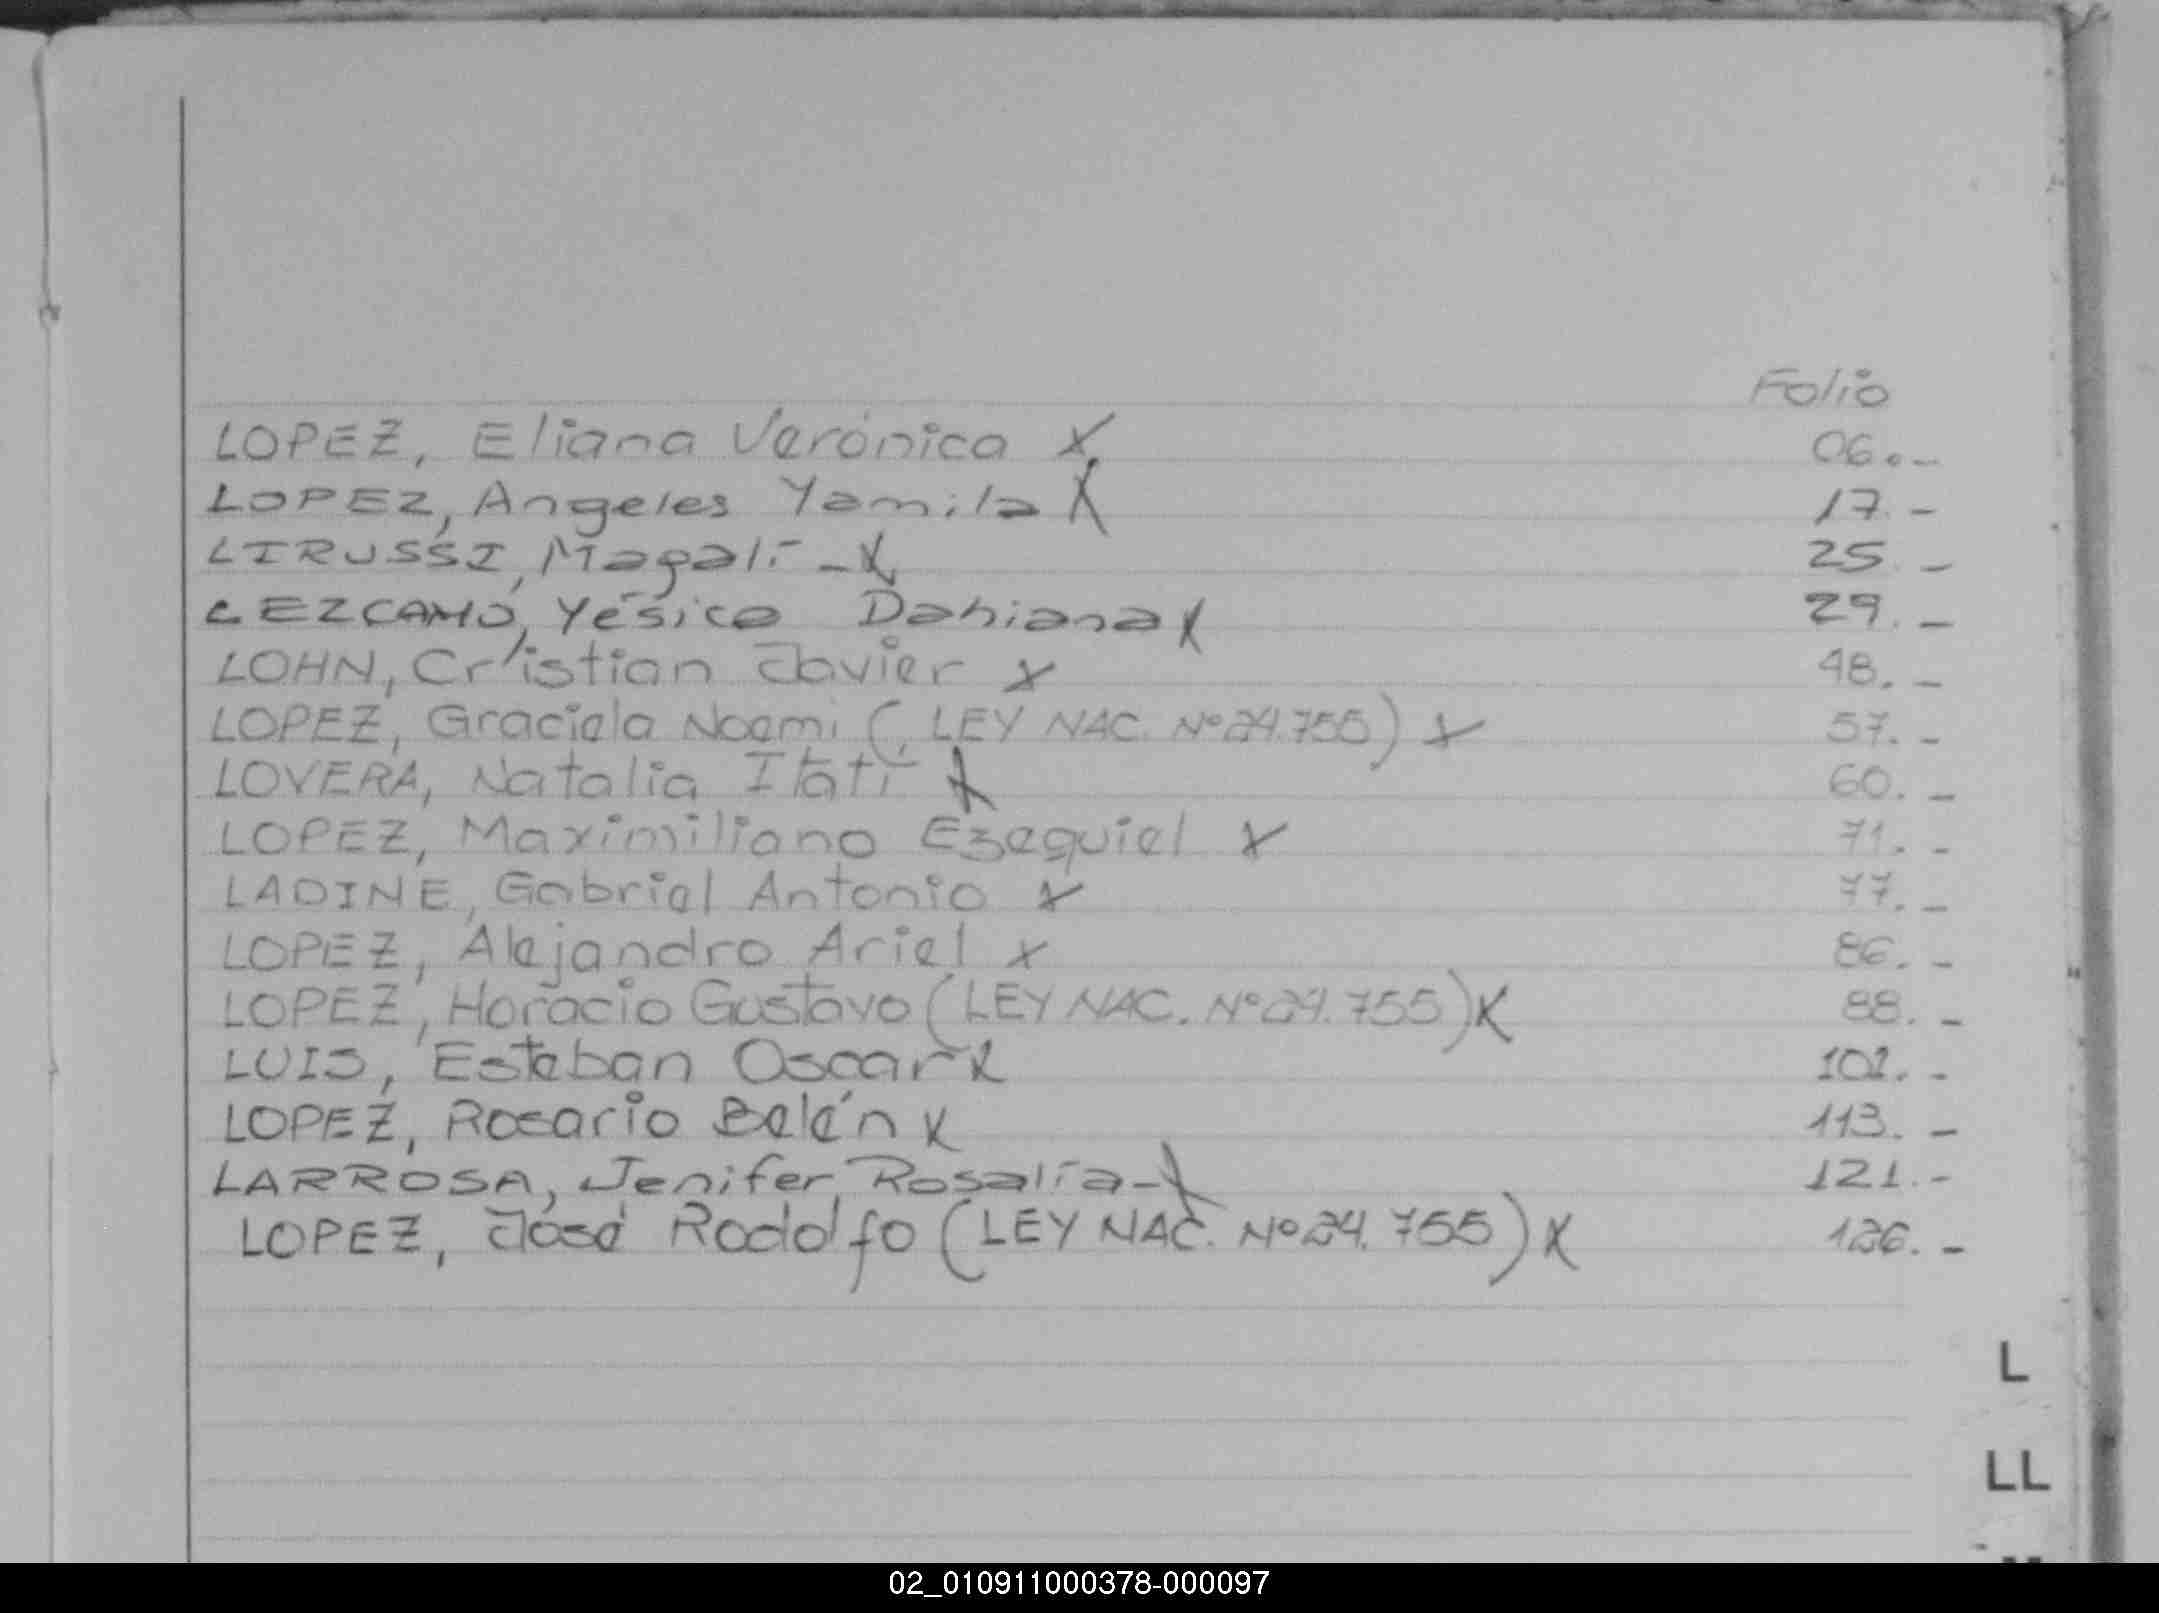 Folio
LOPEZ, Eliana Verónica X 06.-
LOPEZ, Angeles Yamila X 17.-
LIRUSSI, Magalí - X 25.-
LEZCANO, Yésica Dahiana X 29.-
LOHN, Cristian Javier X 48.-
LOPEZ, Graciela Noemi (LEY NAC. Nº 24.755) X 57.-
LOVERA, Natalia Itatí X 60.-
LOPEZ, Maximiliano Ezequiel X 71.-
LADINE, Gabriel Antonio X 77.-
LOPEZ, Alejandro Ariel X 86.-
LOPEZ, Horacio Gustavo (LEY NAC. Nº 24.755) X 88.-
LUIS, Esteban Oscar X
LOPEZ, Rosario Belén X 113.-
LARROSA, Jenifer Rosalía - X 121.-
LOPEZ, José Rodolfo (LEY NAC. Nº 24.755) X 126.-
L
LL
02_010911000378-000097